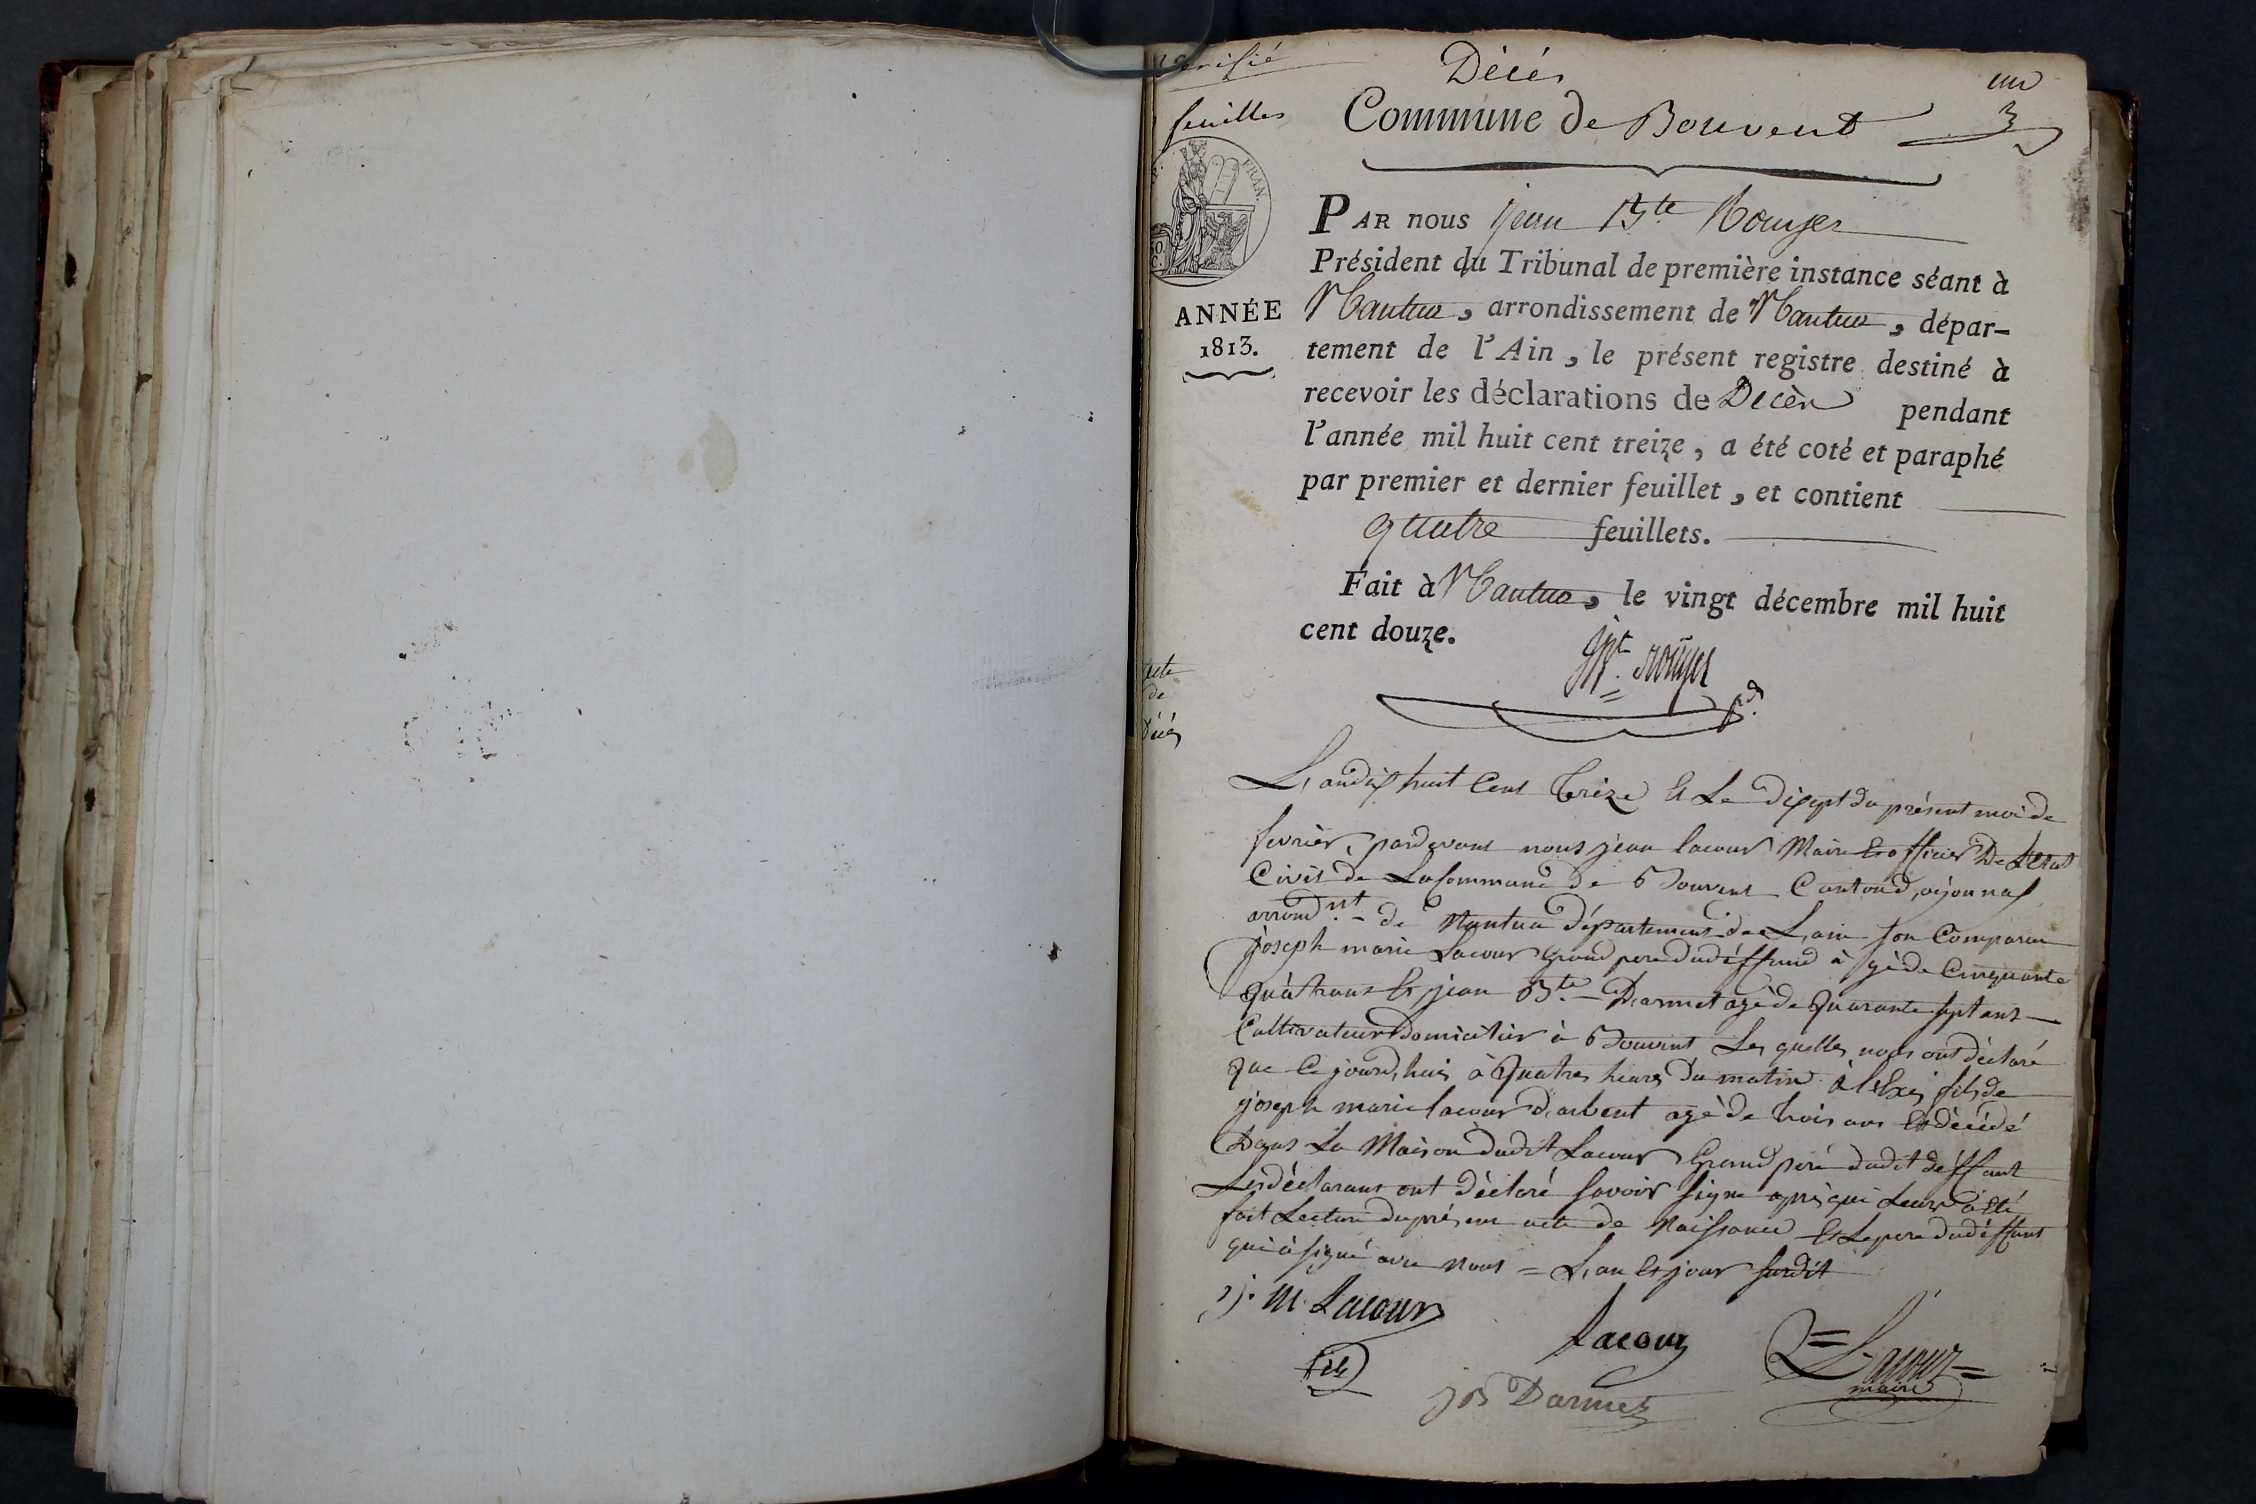 verifié
feuilles
Décés
un
3
Commune de Bouvent
P. FRAN.
50
C.
ANNÉE
1813.
PAR nous jean Bte Rouyer
Président du Tribunal de première instance séant à
Nantua, arrondissement de Nantua, dépar-
tement de l'Ain, le présent registre destiné à
recevoir les déclarations de Décès pendant
l'année mil huit cent treize, a été coté et paraphé
par premier et dernier feuillet, et contient
quatre feuillets.
Fait à Nantua, le vingt décembre mil huit
cent douze.
Rouyer
pdt
acte
de
décés
L'an dix huit Cent Treize Et Le dixsept du présent moi de
fevrier, pardevant nous jean lacour Maire Et officier De L'etat
Civil de La Commune de Bouvent Canton d'oÿonnax
arrondnt de Nantua Département de L'ain son Comparu
joseph marie Lacour Grand pere dudeffund à gè de Cinquante
quatrans Et jean Bte Darmet agé de Quarante sept ans
Cultivateur domicilier à Bouvent Les quelles nous ont déclaré
que Ce jourd'huis à Quatres heures du matin Alexi fils de
joseph marie lacour d'arbent agé de trois ans Est décédé
Dans La Maison dudit Lacour Grand peré dudit deffunt
Les déclarans ont déclaré savoir signe après qui Leurs à Eté
fait Lecture du présent acte de Naissance Et Le pere dudeffunt
qui à signé avec nous = L'an Et jour susdit
j. m. Lacour
fils
Lacour
jB Darmet
Lacour
maire